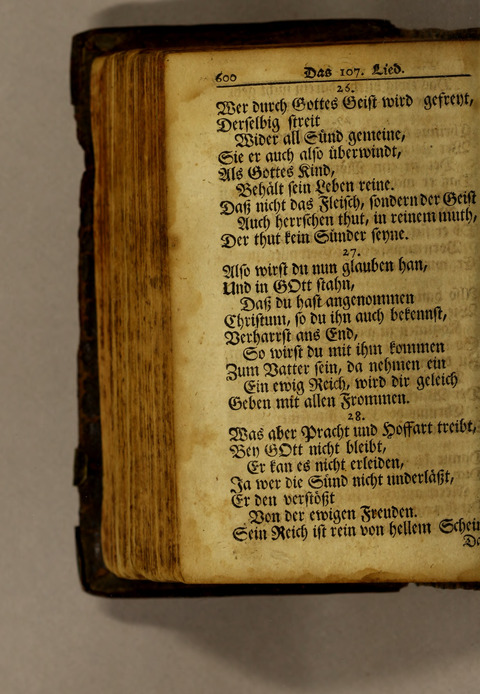 600 Das 107. Lied.
26.
Wer durch Gottes Geist wird gefreyt,
Derselbig streit
Wider all Sünd gemeine,
Sie er auch also überwindt,
Als Gottes Kind,
Behält sein Leben reine.
Daß nicht das Fleisch, sondern der Geist
Auch herrschen thut, in reinem muth,
Der thut kein Sünder seyne.
27.
Also wirst du nun glauben han,
Und in GOtt stahn,
Daß du hast angenommen
Christum, so du ihn auch bekennst,
Verharrst ans End,
So wirst du mit ihm kommen
Zum Vatter sein, da nehmen ein
Ein ewig Reich, wird dir geleich
Geben mit allen Frommen.
28.
Was aber Pracht und Hoffart treibt,
Bey GOtt nicht bleibt,
Er kan es nicht erleiden,
Ja wer die Sünd nicht underläßt,
Er den verstößt
Von der ewigen Freuden.
Sein Reich ist rein von hellem